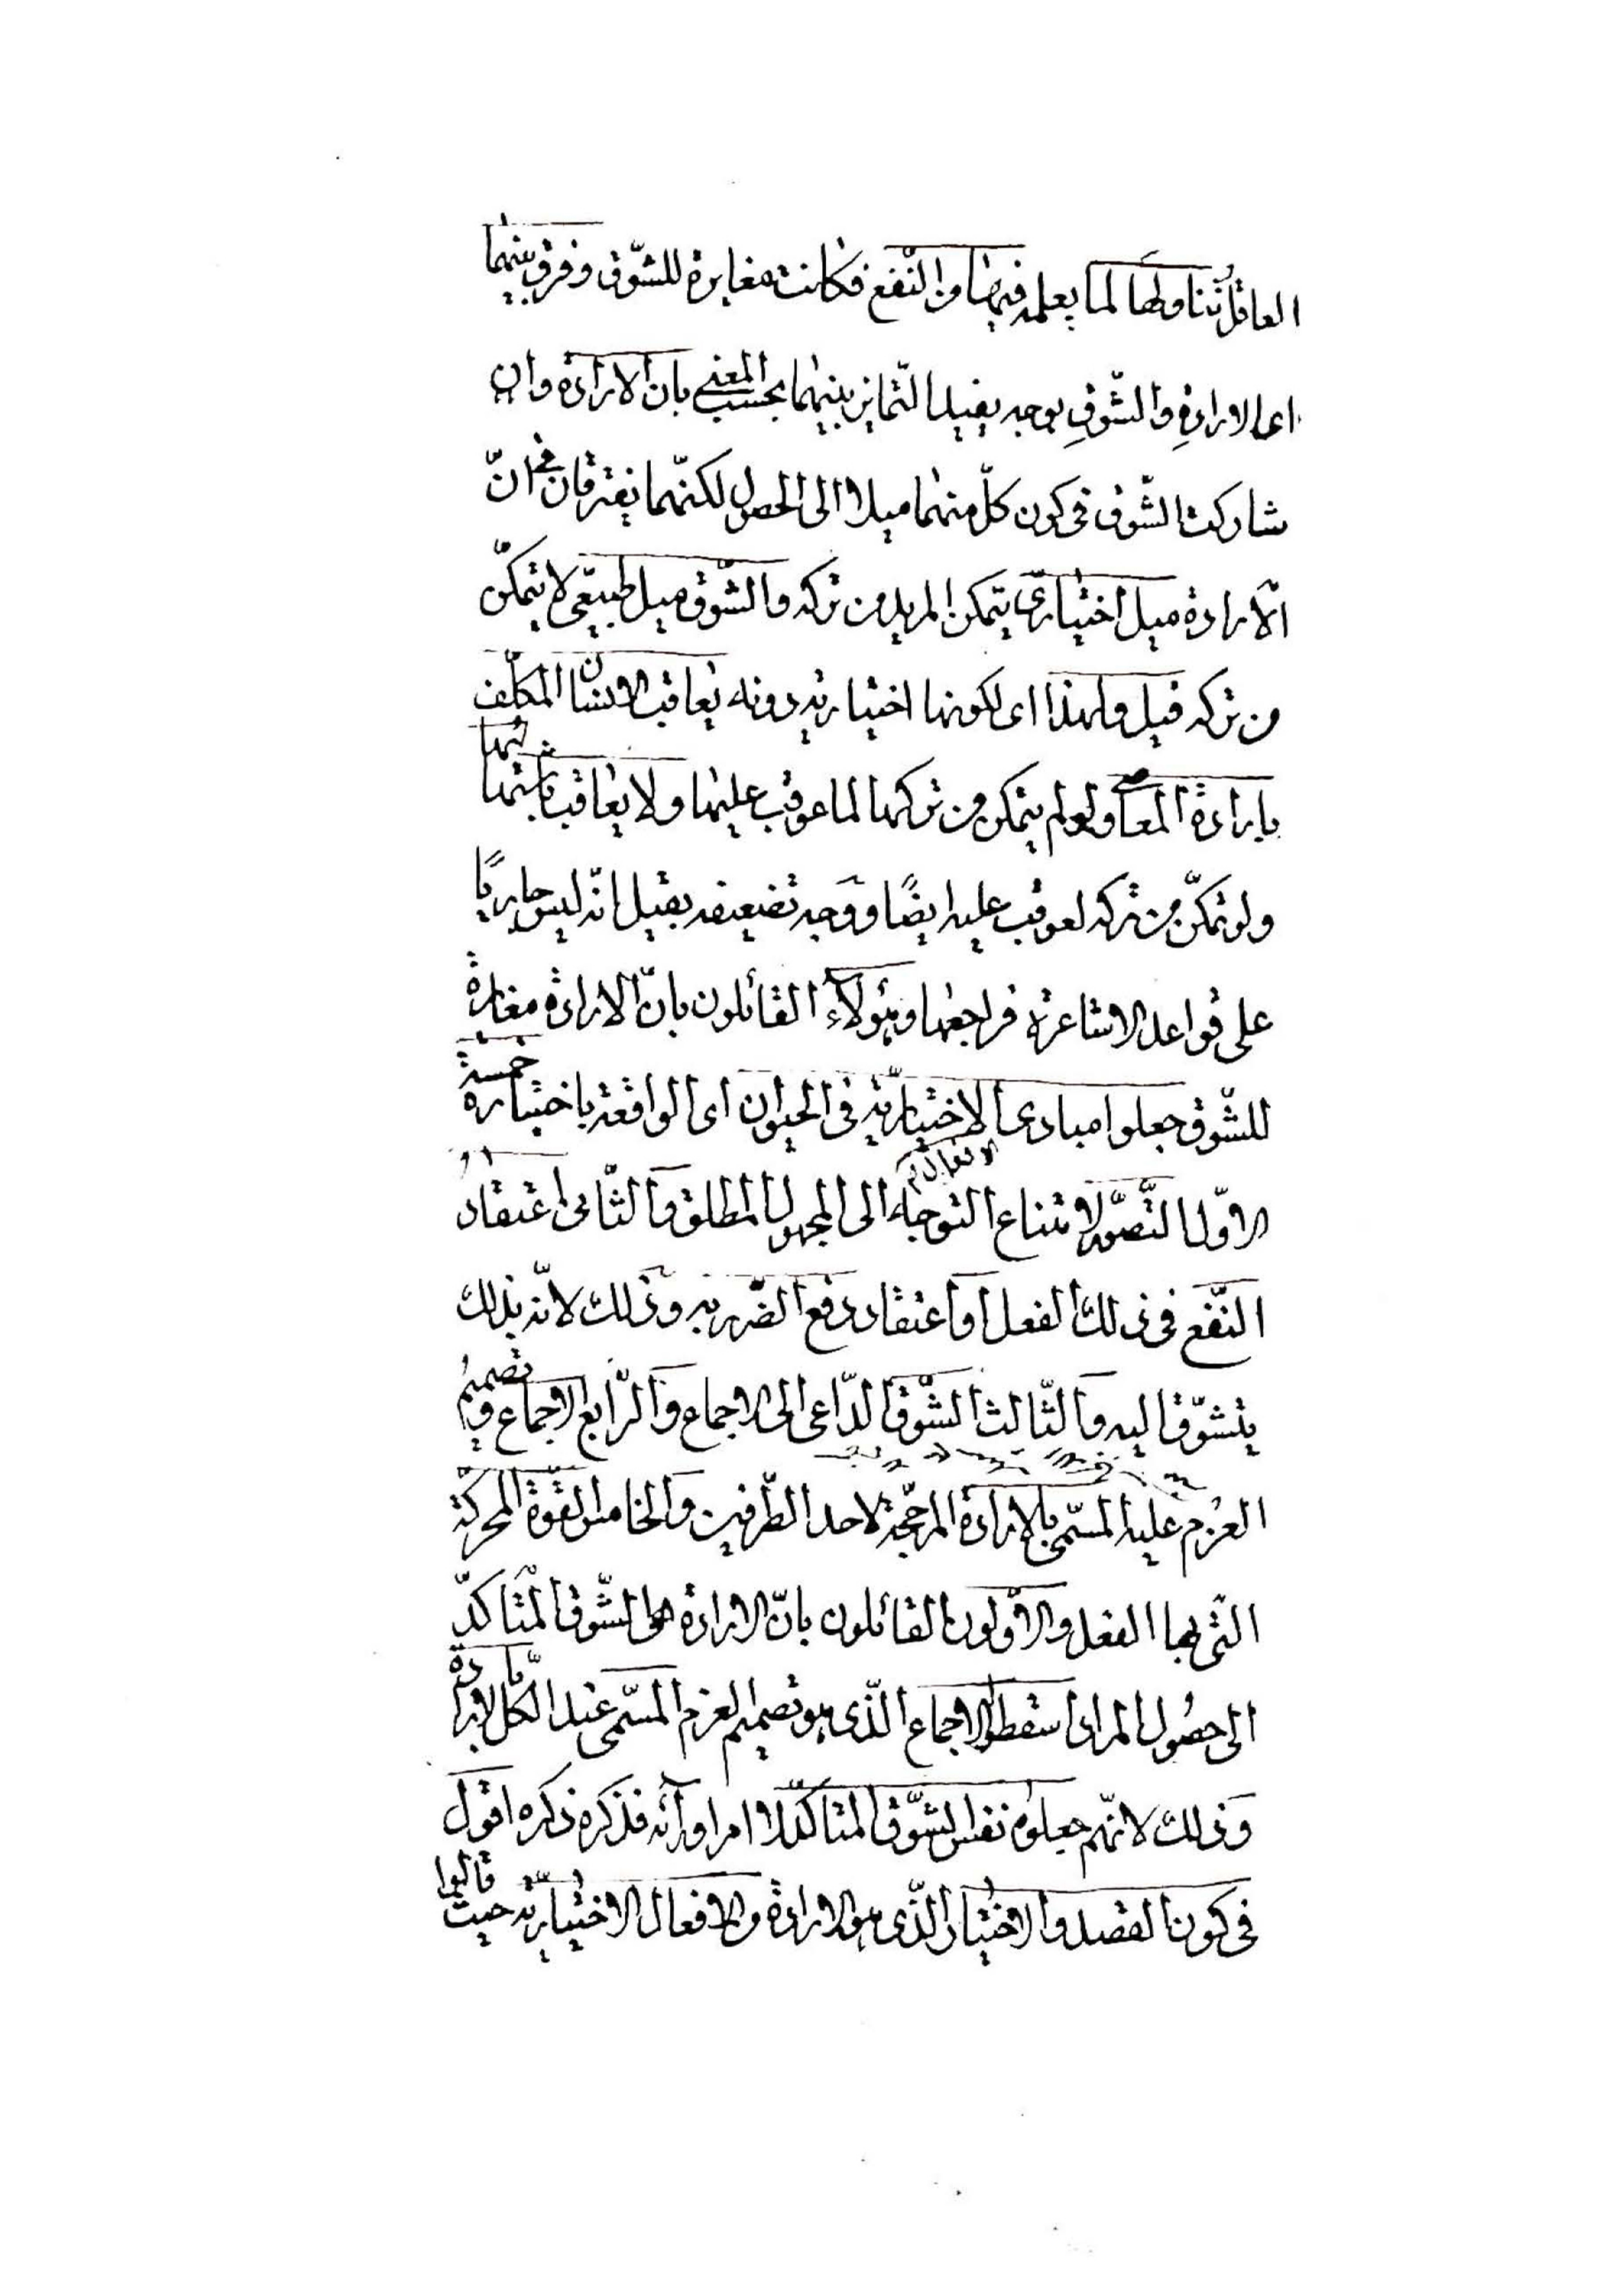 العاقل تناولها لما يعلمه فيها من النّفع فكانت مغايرة للشّوق وفرق بينهما
اى الارادةِ والشّوقِ بوجه يفيد التّمايز بينهما بحسب المعنى بان الارادة وان
شاركت الشّوق فى كون كلّ منهما ميلا الى الحصول لكنّهما يفترقان فى انّ
الارادة ميل اختيارىّ يتمكن المريد من تركه والشّوق ميل طبيعىّ لا يتمكّن
من تركه قيل ولهذا اى لكونها اختياريه دونه يعاقب الانسان المكلّف
بارادة المعاصى ولو لم يتمكن من تركها لما عوقب عليها ولا يعاقب باشتهائها
ولو تمكّن من تركه لعوقب عليه ايضًا ووجه تضعيفه بقيل انّه ليس جاريًا
على قواعد الاشاعرة فراجعها وهؤلاء القائلون بانّ الارادة مغايرة
للشّوق جعلوا مبادى الافعال الاختياريّة فى الحيوان اى الواقعة باختياره خمسة
الاوّل التّصوّر لامتناع التوجه الى المجهول المطلق والثّانى اعتقادُ
النّفع فى ذلك الفعل او اعتقاد دفع الضّرر به وذلك لانّه بذلك
يتشوّق اليه والثّالث الشّوق الدّاعى الى الاجماع والرّابع الاجماع وهو تصميمُ
العزم عليه المسمّى بالارادة المرجّحة لاحد الطّرفين والخامس القوّة المحركة
الّتى بها الفعل والاوّلون القائلون بانّ الارادة هى الشّوق المتأكّد
الى حصُول المراد اسقطوا الاجماع الّذى هو تصميم العزم المسمّى عند الكلّ بالارادة
وذلك لانّهم جعلوه نفس الشّوق المتاكّد لا امرا ورآئه فذكره ذكره اقول
فى كون القصد والاختيار الّذى هو الارادة من الافعال الاختياريّة حيث قالوا